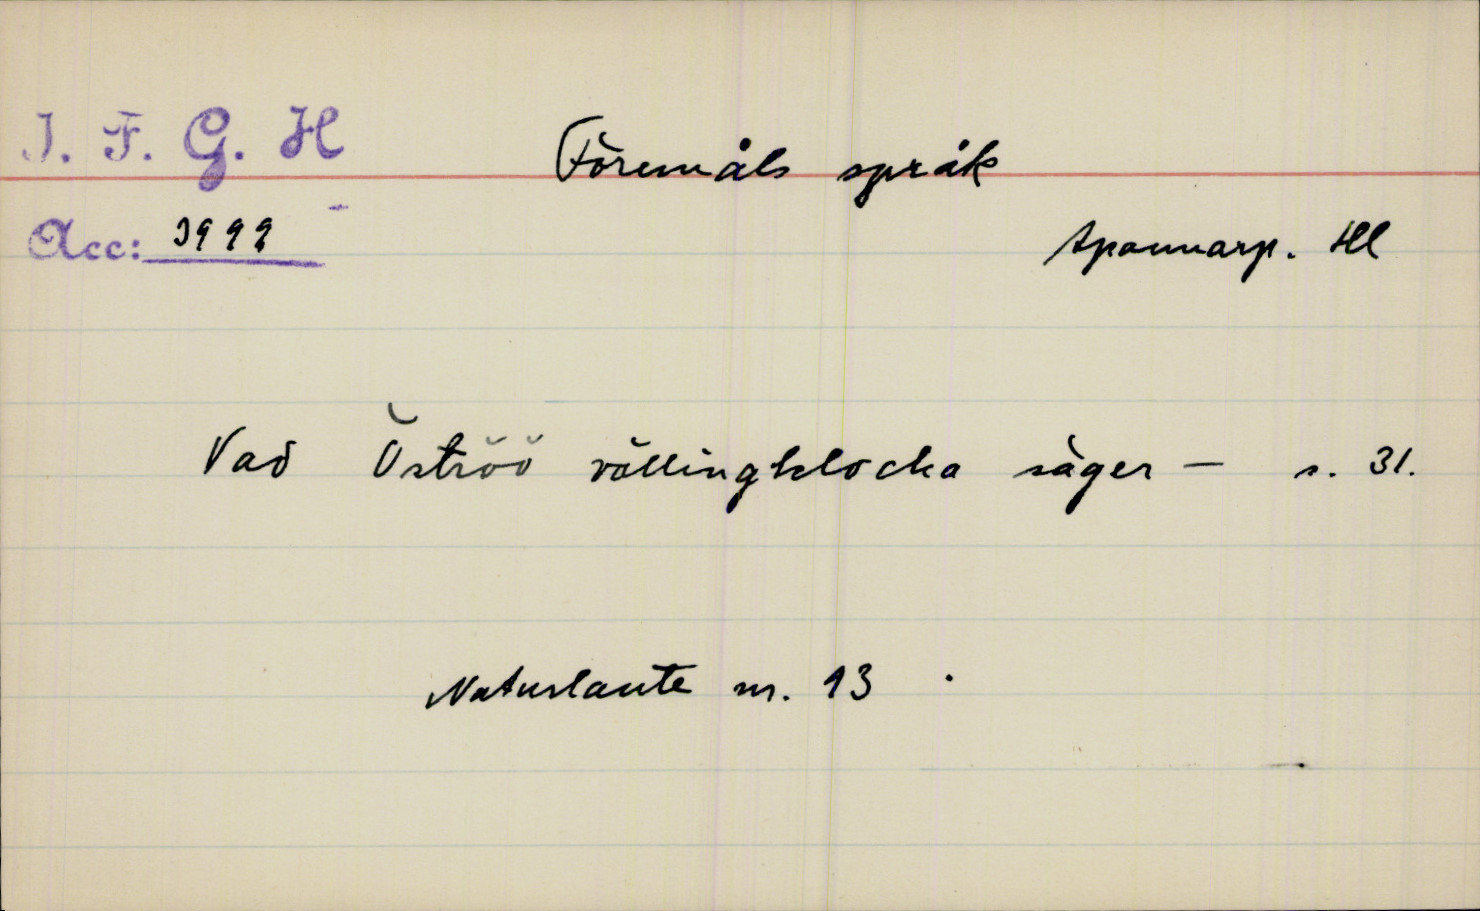 I. F. G. H
Föremåls språk
Acc: 3999
Spannarp. Hl
Vad Öströö vällingklocka säger — s. 31.
Naturlaute nr. 13